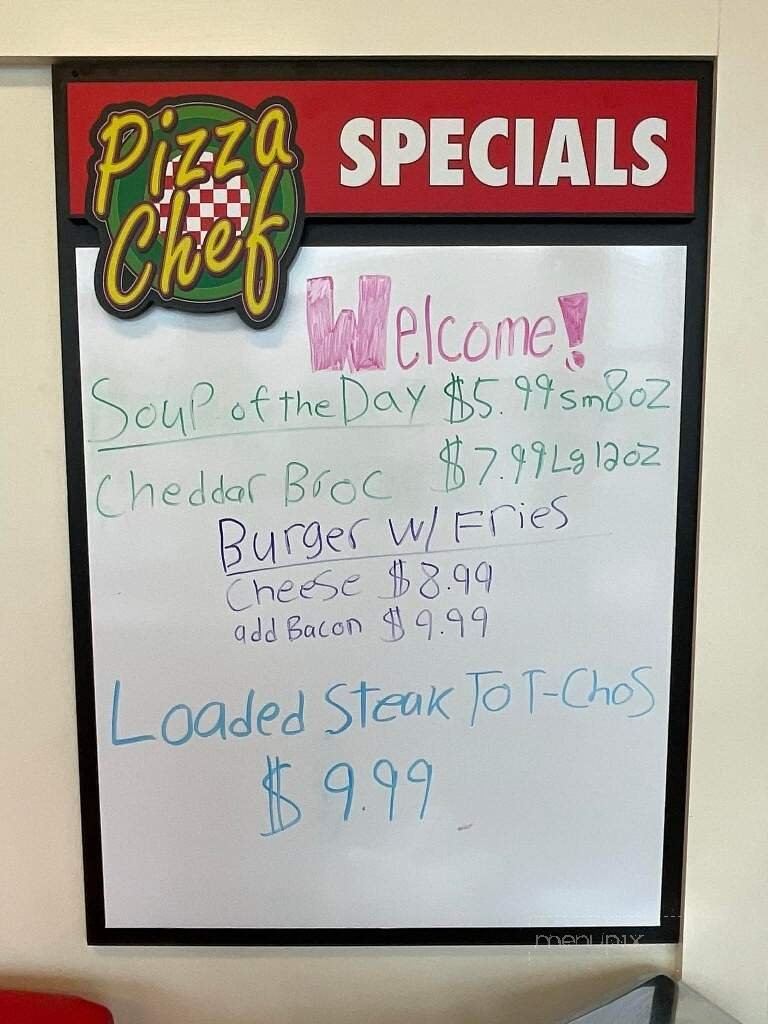 Pizza
Chef
SPECIALS
Welcome!
Soup of the Day $5.99 sm 8oz
Cheddar Broc $7.99 Lg 12oz
Burger w/ Fries
Cheese $8.99
add Bacon $9.99
Loaded Steak ToT-Chos
$9.99
menupix